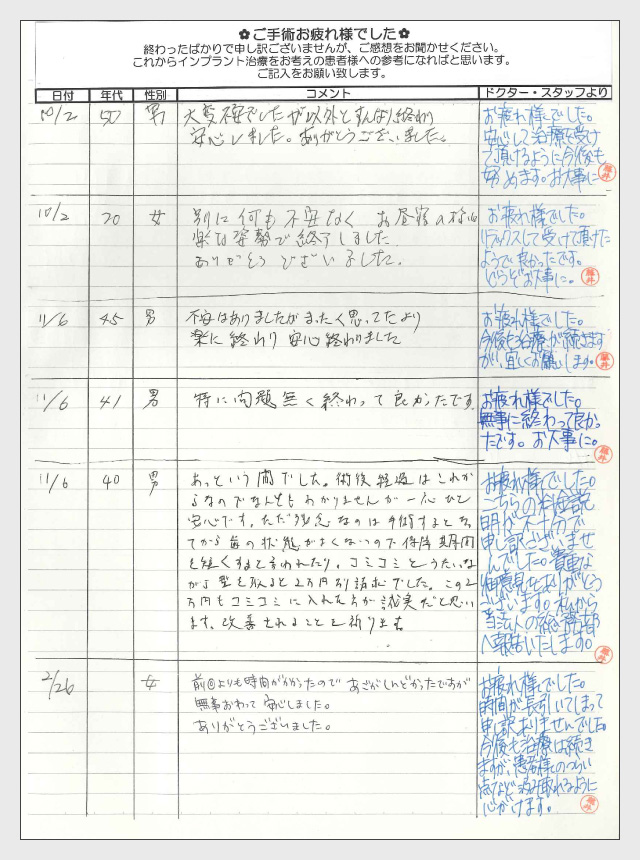 ✿ご手術お疲れ様でした✿
終わったばかりで申し訳ございませんが、ご感想をお聞かせください。
これからインプラント治療をお考えの患者様への参考になればと思います。
ご記入をお願い致します。
日付 年代 性別 コメント ドクター・スタッフより
10/2 50 男
大変不安でしたが以外とすんなり終わり
安心しました。ありがとうございました。
お疲れ様でした。
安心して治療を受け
て頂けるように今後も
努めます。お大事に
10/2 20 女
別に何も不安なく お昼寝の
楽な姿勢で終了しました
ありがとうございました。
お疲れ様でした。
リラックスして受けて頂けた
ようで良かったです。
どうぞお大事に。
11/6 45 男
不安はありましたがまったく思ってたより
楽に終わり安心終わりました
お疲れ様でした。
今後も治療が続きます
が、宜しくお願いします。
11/6 41 男
特に問題無く終わって良かったです
お疲れ様でした。
無事に終わって良かっ
たです。お大事に。
11/6 40 男
あっという間でした。術後経過はこれか
らなのでなんともわかりませんが一安心
安心です。ただ残念なのは手術するとな
てから歯の状態がよくないので保障期間
を短くすると言われたり、コミコミとうたいな
がら型を取ると2万円別請求でした。この2
万円もコミコミに入れた方が誠実だと思い
ます、改善されることを祈ります
お疲れ様でした。
こちらの料金説
明が不十分で
申し訳ございませ
んでした。貴重な
御意見をありがとう
ございます。私から
当法人の総務部
へ報告いたします。
2/26 女
前回よりも時間がかかったので あごがしんどかったですが
無事おわって安心しました。
ありがとうございました。
お疲れ様でした。
時間が長引いてしまって
申し訳ありませんでした。
今後も治療は続き
ますが、患者様のつらい
点など汲み取れるように
心がけます。